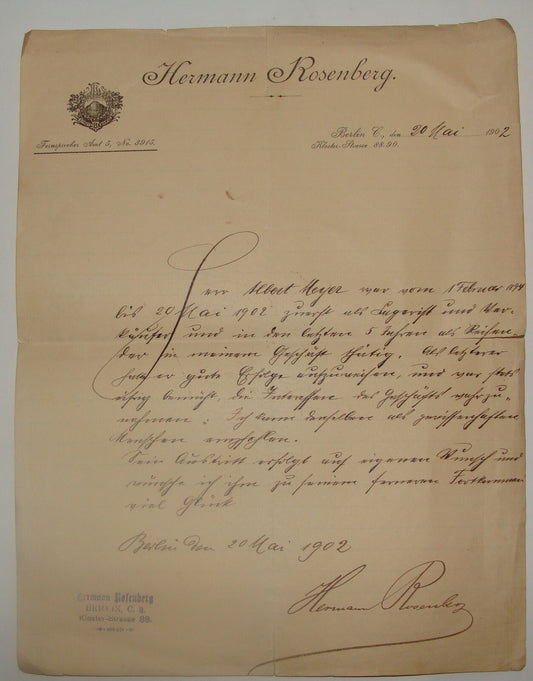 Hermann Rosenberg.
Fernsprecher Amt 5, No. 3915.
Berlin C., den 20 Mai 1902
Kloster-Strasse 88.90.
Herr Albert Meyer war vom 1 Februar 1894
bis 20 Mai 1902 zuerst als Lagerist und Ver-
käufer und in den letzten 5 Jahren als Reisen-
der in meinem Geschäft thätig. Als letzterer
hat er gute Erfolge aufzuweisen, und war stets
eifrig bemüht, die Interessen des Geschäfts wahrzu-
nehmen. Ich kann denselben als gewissenhaften
Menschen empfehlen.
Sein Austritt erfolgt auf eigenen Wunsch und
wünsche ich ihm zu seinem ferneren Fortkommen
viel Glück
Berlin den 20 Mai 1902
Hermann Rosenberg
Hermann Rosenberg
BERLIN, C. 2.
Kloster-Strasse 88.